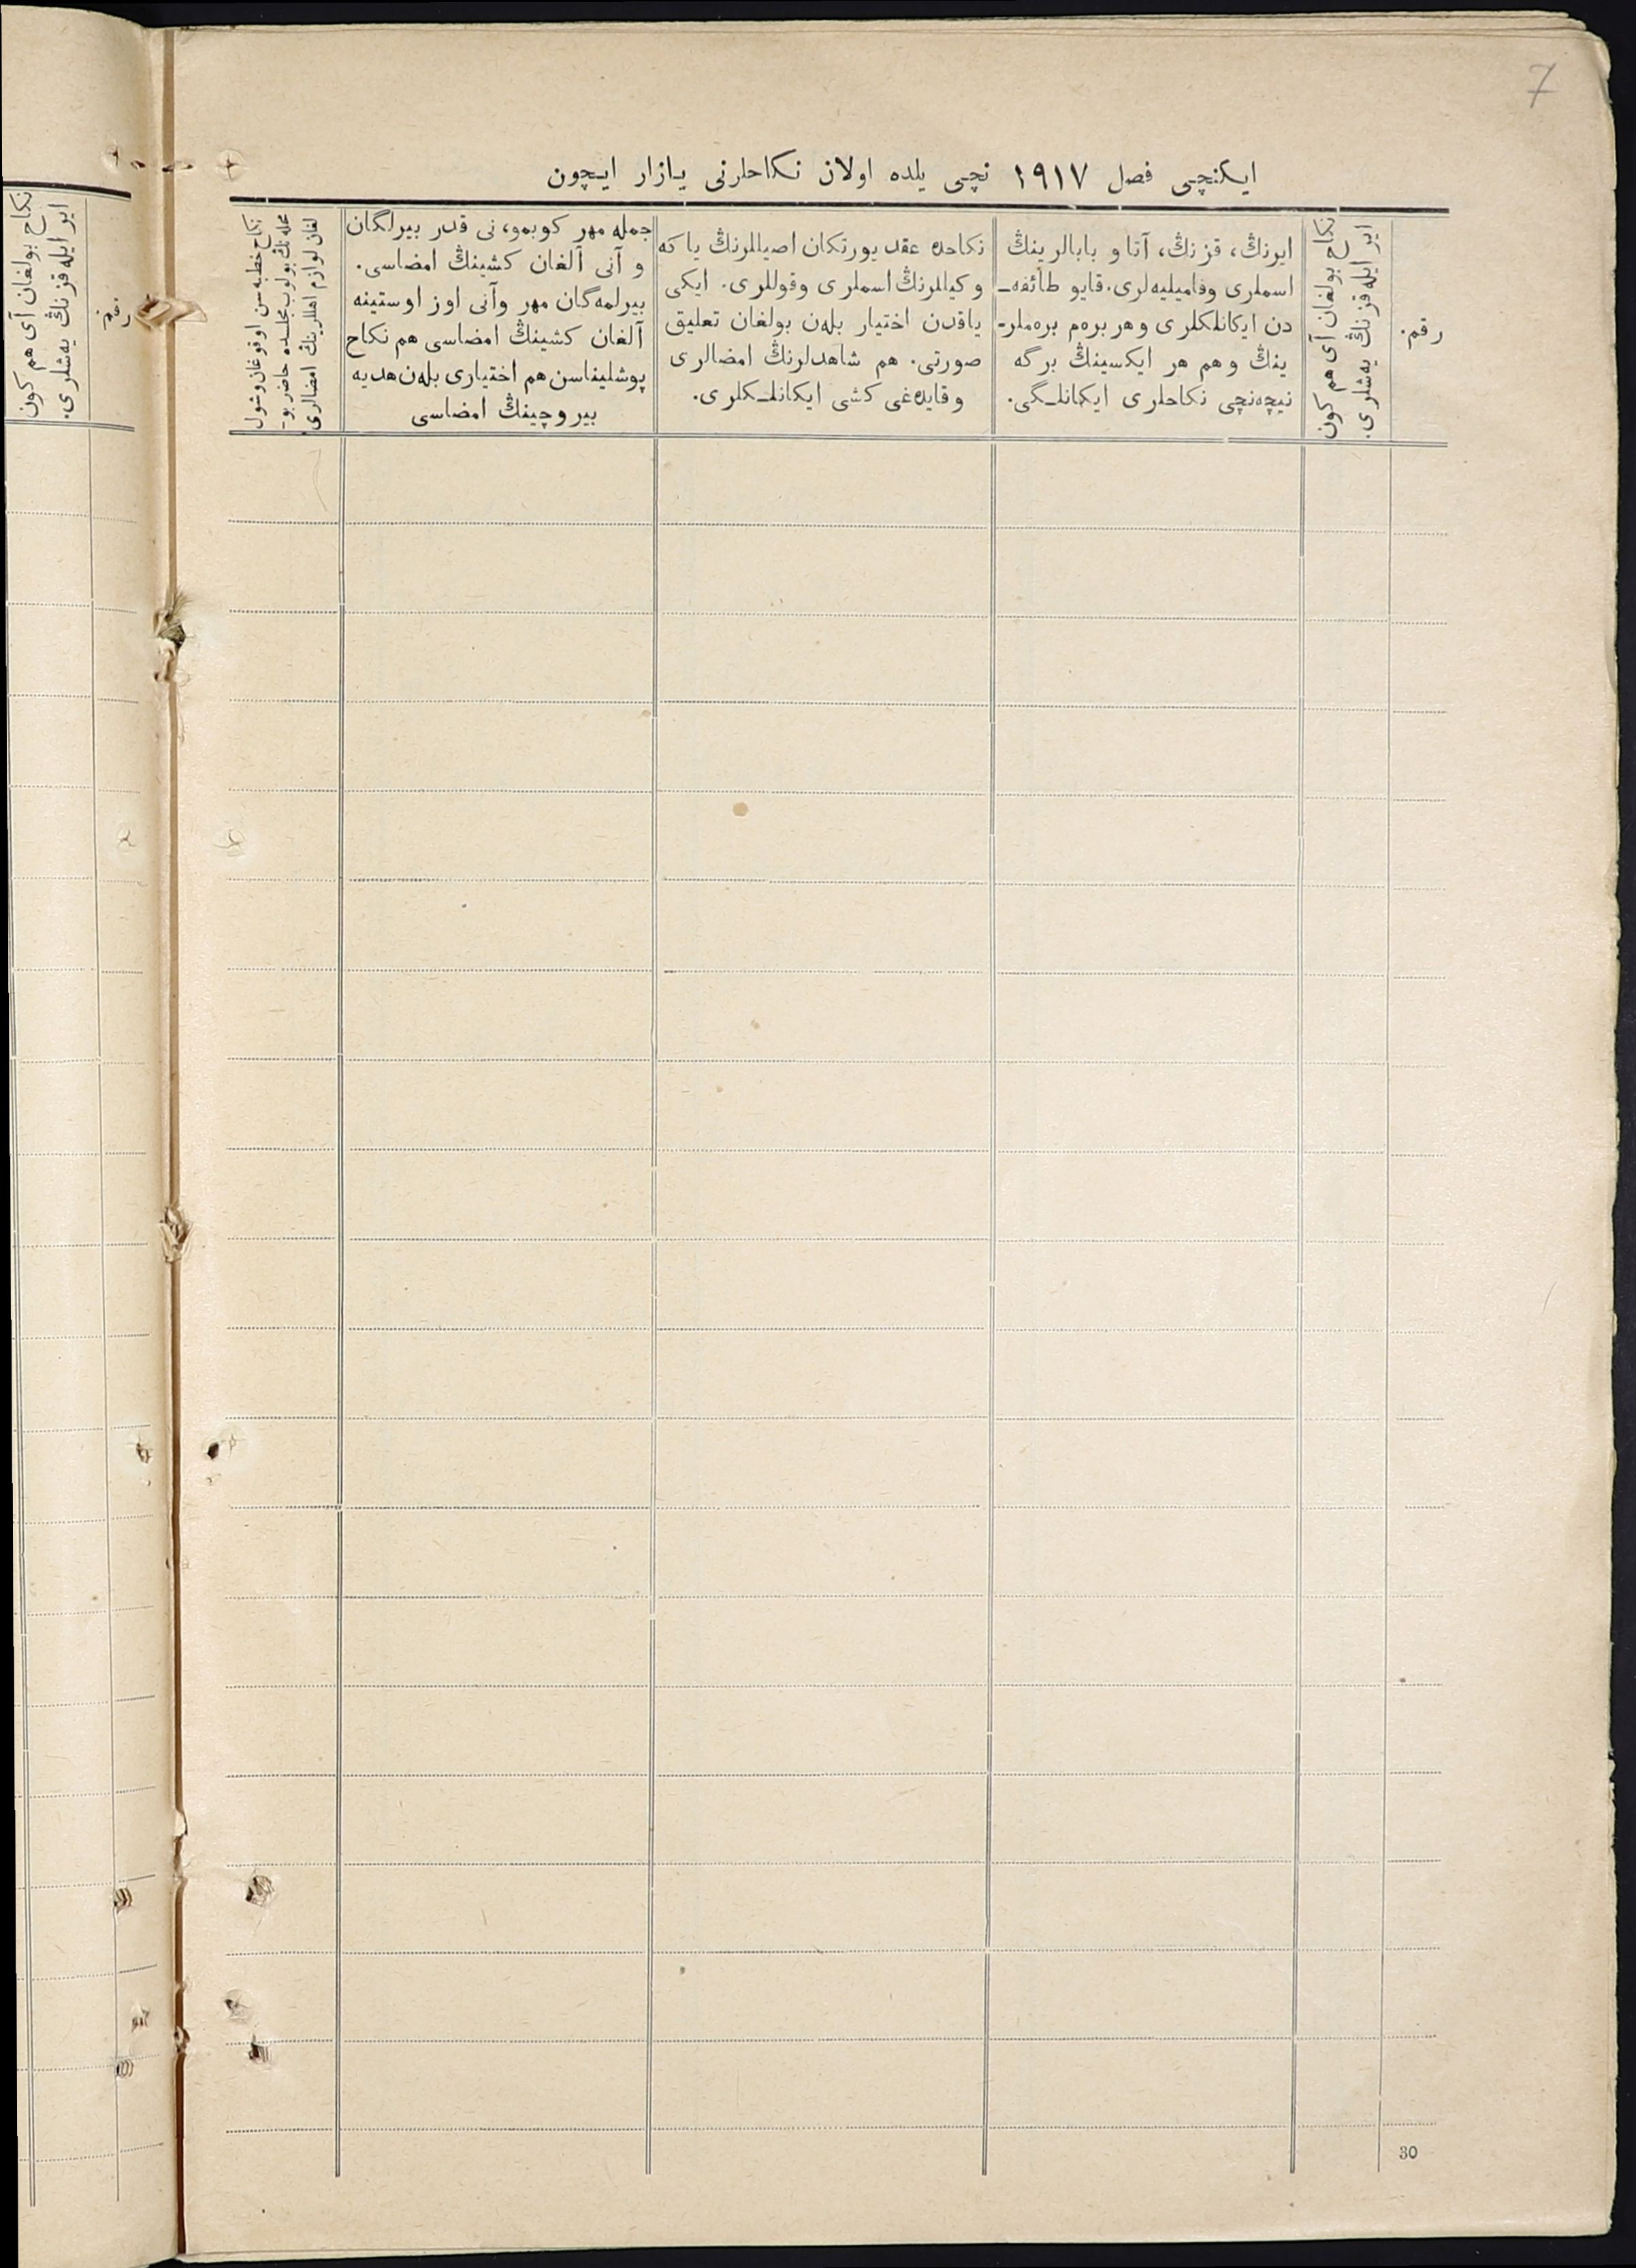 7
ایکنچی فصل ۱۹۱۷ نچی یلده اولان نکاحلرنی یازار ایچون
رقم.
نکاح بولغان آی هم کون
ایر ایله قزنڭ یه‌شلری.
ایرنڭ، قزنڭ، آتا و بابالرینڭ
اسملری وفامیلیه‌لری. قایو طائفه‌ـ
دن ایکانلکلری وهر بره‌م بره‌ملرـ
ینڭ وهم هر ایکسینڭ برگه
نیچه‌نچی نکاحلری ایکانلـگی.
نکاحده عقد یورتکان اصیللرنڭ یا که
وکیللرنڭ اسملری وقوللری. ایکی
یاقدن اختیار بله‌ن بولغان تعلیق
صورتی. هم شاهدلرنڭ امضالری
وقایده‌غی کشی ایکانلـکلری.
جمله مهر کوبمو، نی قدر بیرلگان
و آنی آلغان کشینڭ امضاسی.
بیرلمه‌گان مهر وآنی اوز اوستینه
آلغان کشینڭ امضاسی هم نکاح
پوشلیناسن هم اختیاری بله‌ن هدیه
بیروچینڭ امضاسی
نکاح خطبه‌سن اوقوغان وشول
محله‌نڭ بولوب مجلسده حاضر بوـ
لغان لوازم اهللرینڭ امضالری
رقم.
نکاح بولغان آی هم کون
ایر ایله قزنڭ یه‌شلری.
30